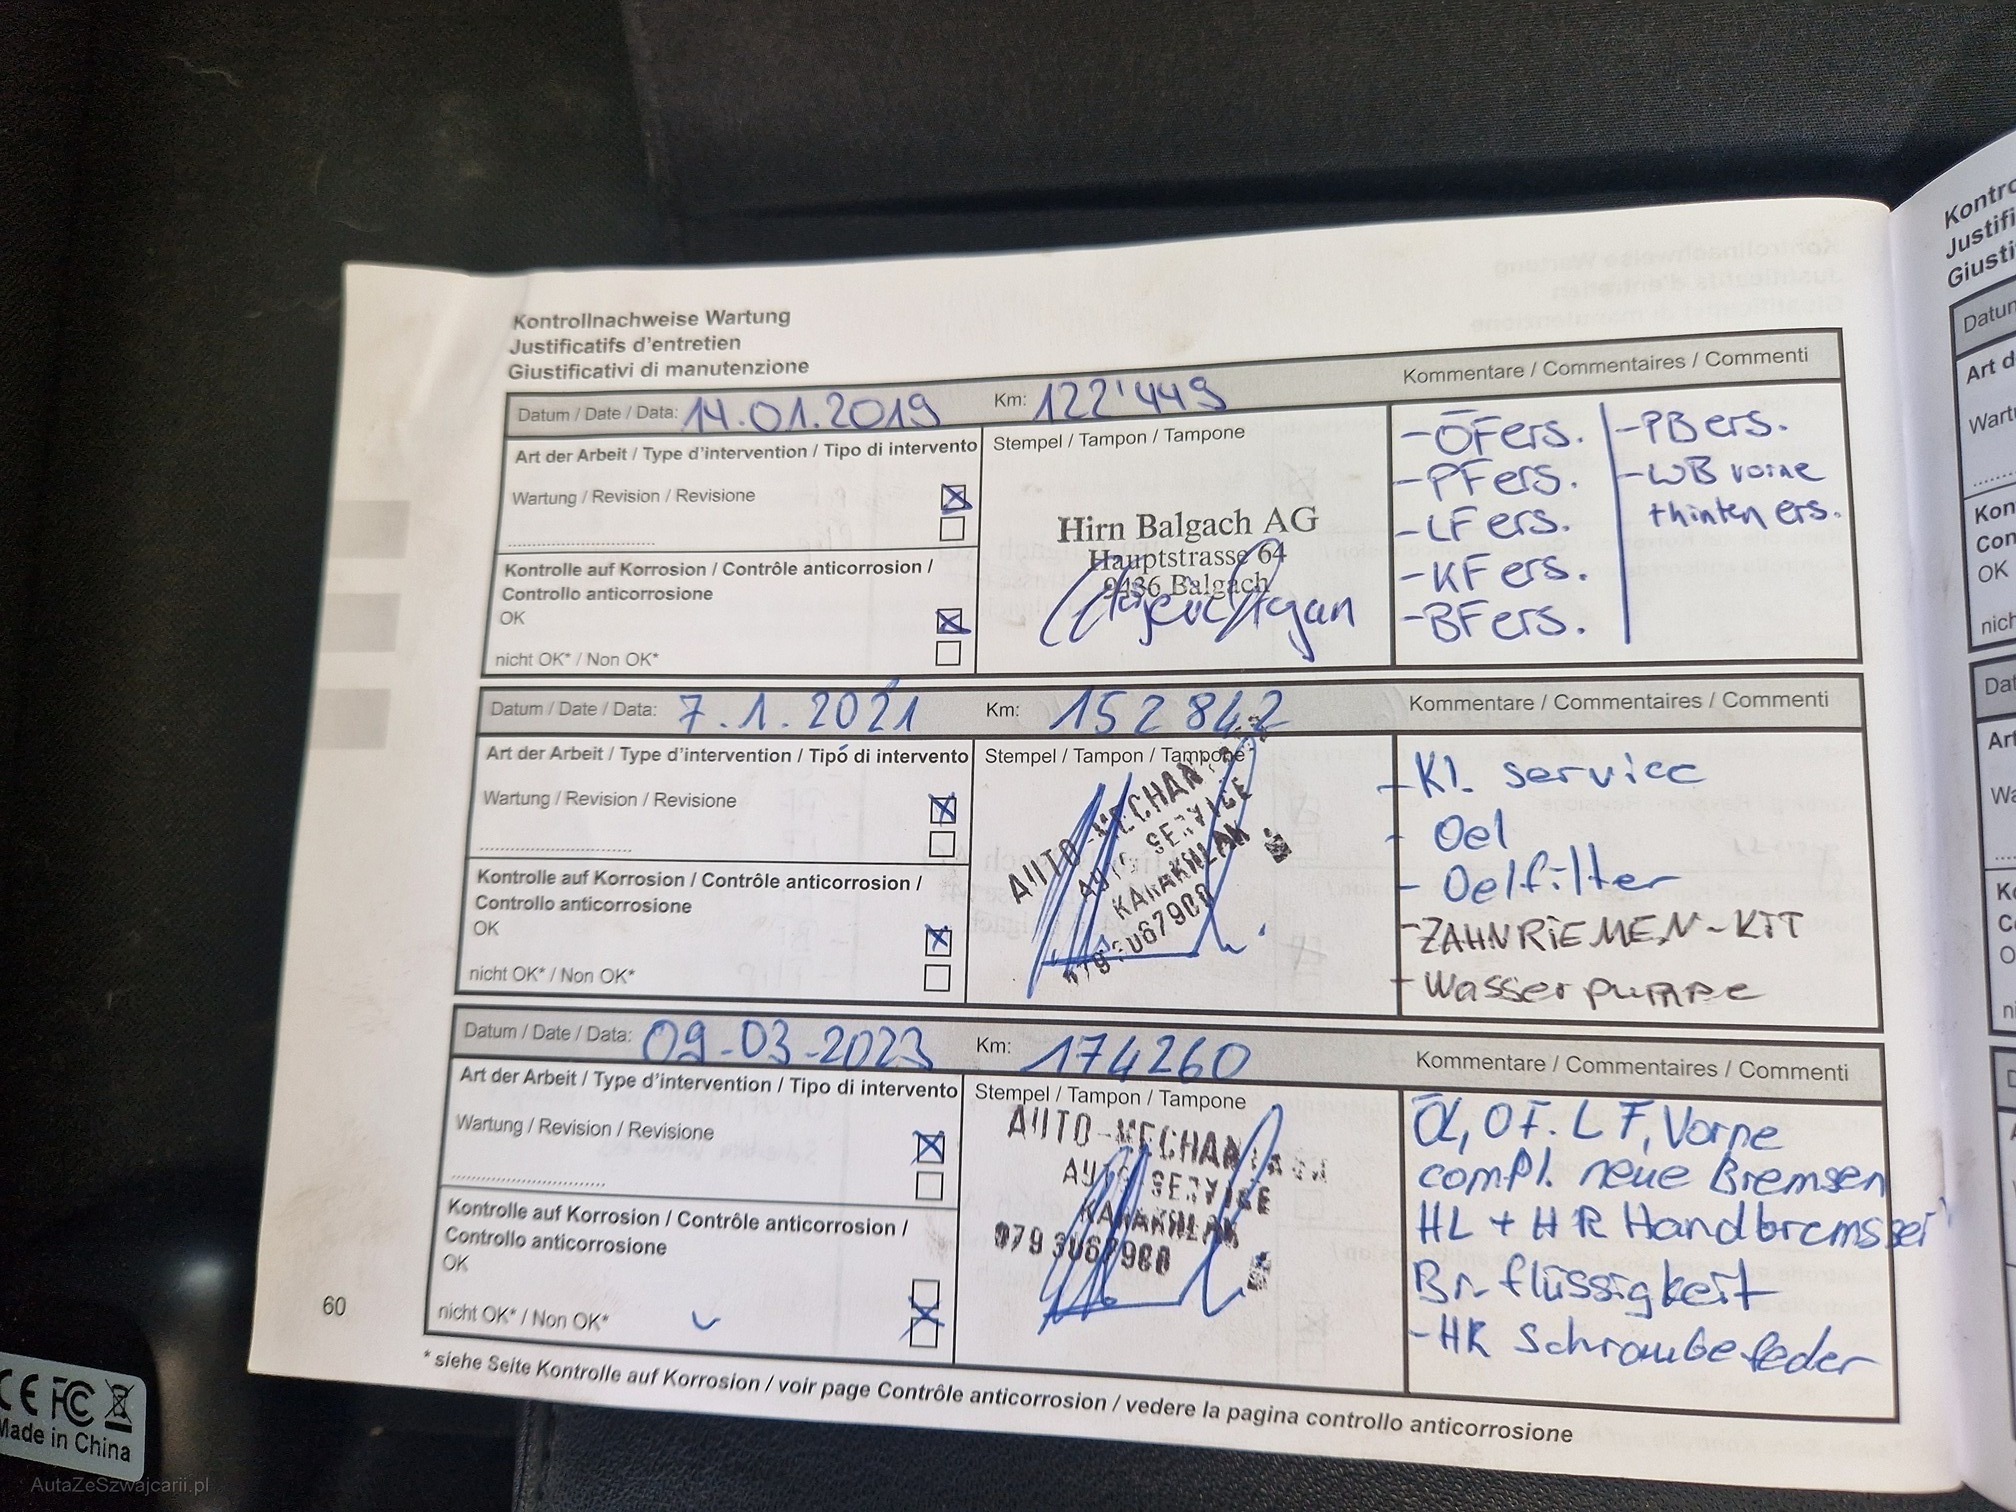 Kontrollnachweise Wartung
Justificatifs d'entretien
Giustificativi di manutenzione
Datum / Date / Data: 14.01.2019 Km: 122'449 Kommentare / Commentaires / Commenti
Art der Arbeit / Type d'intervention / Tipo di intervento
Wartung / Revision / Revisione
Kontrolle auf Korrosion / Contrôle anticorrosion /
Controllo anticorrosione
OK
nicht OK* / Non OK*
Stempel / Tampon / Tampone
Hirn Balgach AG
Hauptstrasse 64
9436 Balgach
- ÖF ers.
- PF ers.
- LF ers.
- KF ers.
- BF ers.
- PB ers.
- WB vorne
+hinten ers.
Datum / Date / Data: 7.1.2021 Km: 152842 Kommentare / Commentaires / Commenti
Art der Arbeit / Type d'intervention / Tipo di intervento
Wartung / Revision / Revisione
Kontrolle auf Korrosion / Contrôle anticorrosion /
Controllo anticorrosione
OK
nicht OK* / Non OK*
Stempel / Tampon / Tampone
AUTO-MECHAN
AUTO SERVICE
- Kl. service
- Oel
- Oelfilter
- ZAHNRIEMEN-KIT
- Wasserpumpe
Datum / Date / Data: 09-03-2023 Km: 174260 Kommentare / Commentaires / Commenti
Art der Arbeit / Type d'intervention / Tipo di intervento
Wartung / Revision / Revisione
Kontrolle auf Korrosion / Contrôle anticorrosion /
Controllo anticorrosione
OK
nicht OK* / Non OK*
Stempel / Tampon / Tampone
AUTO-MECHAN
AUTO SERVICE
Öl, ÖF. LF, Vorne
compl. neue Bremsen
HL + HR Handbremsser
Br. flüssigkeit
- HR Schraubefeder
60
* siehe Seite Kontrolle auf Korrosion / voir page Contrôle anticorrosion / vedere la pagina controllo anticorrosione
CE FC
Made in China
AutaZeSzwajcarii.pl
Kontro
Justifi
Giusti
Datum
Art d
Wartu
Kon
Con
OK
nich